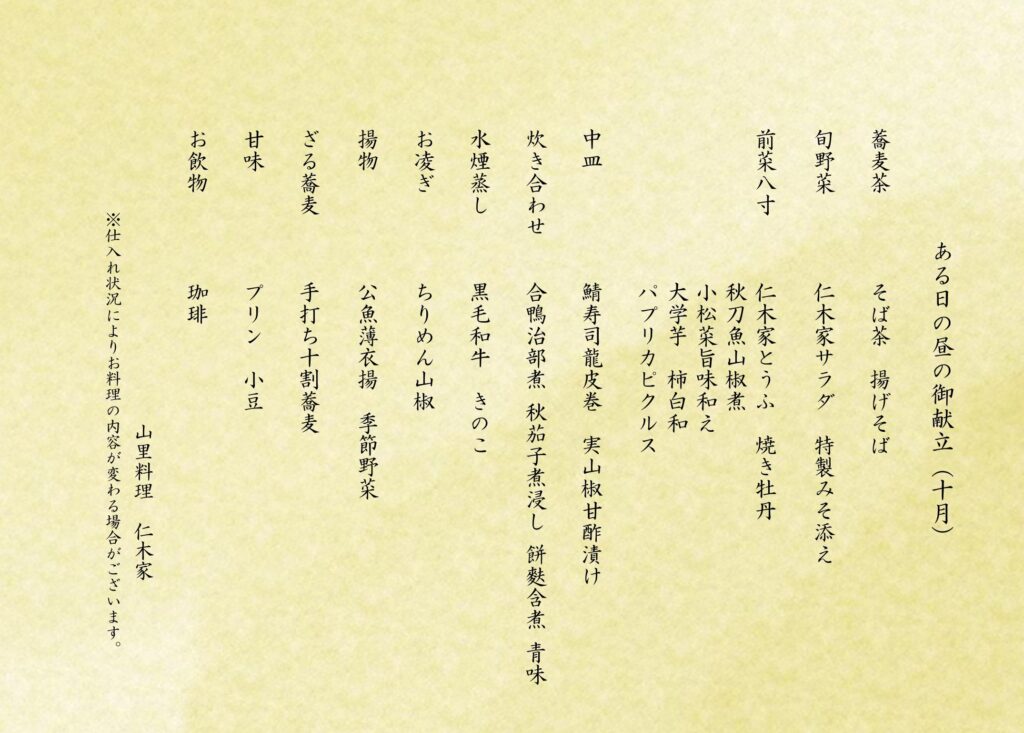 ある日の昼の御献立（十月）
蕎麦茶　そば茶　揚げそば
旬野菜　仁木家サラダ　特製みそ添え
前菜八寸　仁木家とうふ　焼き牡丹
秋刀魚山椒煮
小松菜旨味和え
大学芋　柿白和
パプリカピクルス
中皿　鯖寿司龍皮巻　実山椒甘酢漬け
炊き合わせ　合鴨治部煮　秋茄子煮浸し　餅麩含煮　青味
水煙蒸し　黒毛和牛　きのこ
お凌ぎ　ちりめん山椒
揚物　公魚薄衣揚　季節野菜
ざる蕎麦　手打ち十割蕎麦
甘味　プリン　小豆
お飲物　珈琲
山里料理　仁木家
※仕入れ状況によりお料理の内容が変わる場合がございます。